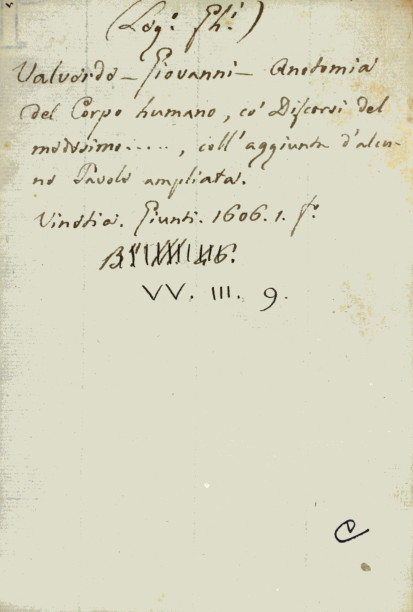 (Leg. Ph.)
Valverde - Giovanni - Anotomia
del Corpo humano, co' Discorsi del
medesimo....., coll' aggiunta d'alcu-
ne Tavole ampliata.
Vinetia. Giunti. 1606. 1. f.º
VV. III. 9.
C